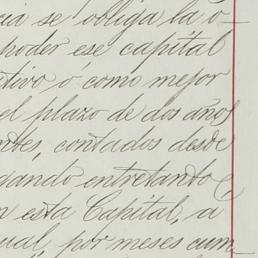 cia se obliga la o
poder ese capital
tivo ó como mejor
el plazo de dos años
ntes, contados desde
gando entretando
n esta Capital, a
ual, por meses cum